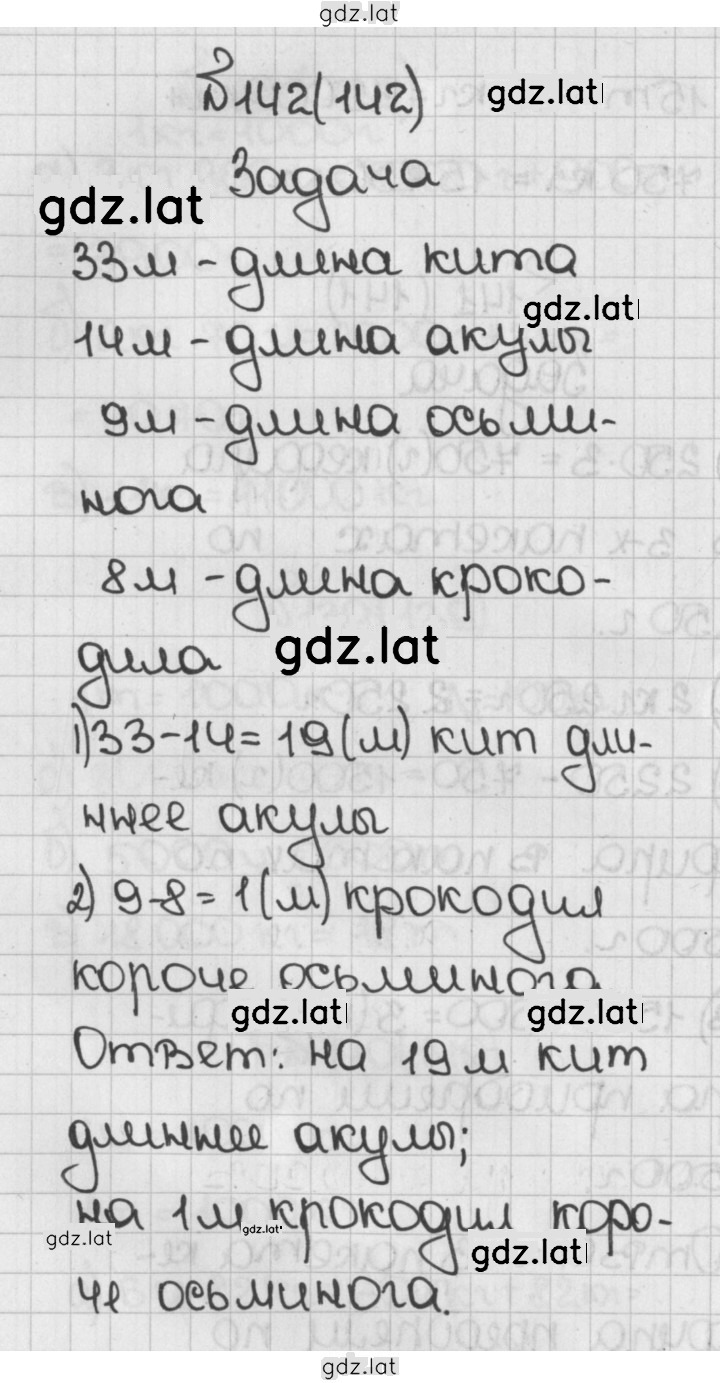 gdz.lat
№142(142)
gdz.lat
Задача
gdz.lat
33м - длина кита
gdz.lat
14м - длина акулы
9м - длина осьми-
нога
8м - длина кроко-
дила
gdz.lat
1) 33-14=19(м) кит дли-
ннее акулы
2) 9-8=1(м) крокодил
короче осьминога
gdz.lat
gdz.lat
Ответ: на 19м кит
длиннее акулы;
на 1м крокодил коро-
gdz.lat
gdz.lat
gdz.lat
че осьминога.
gdz.lat